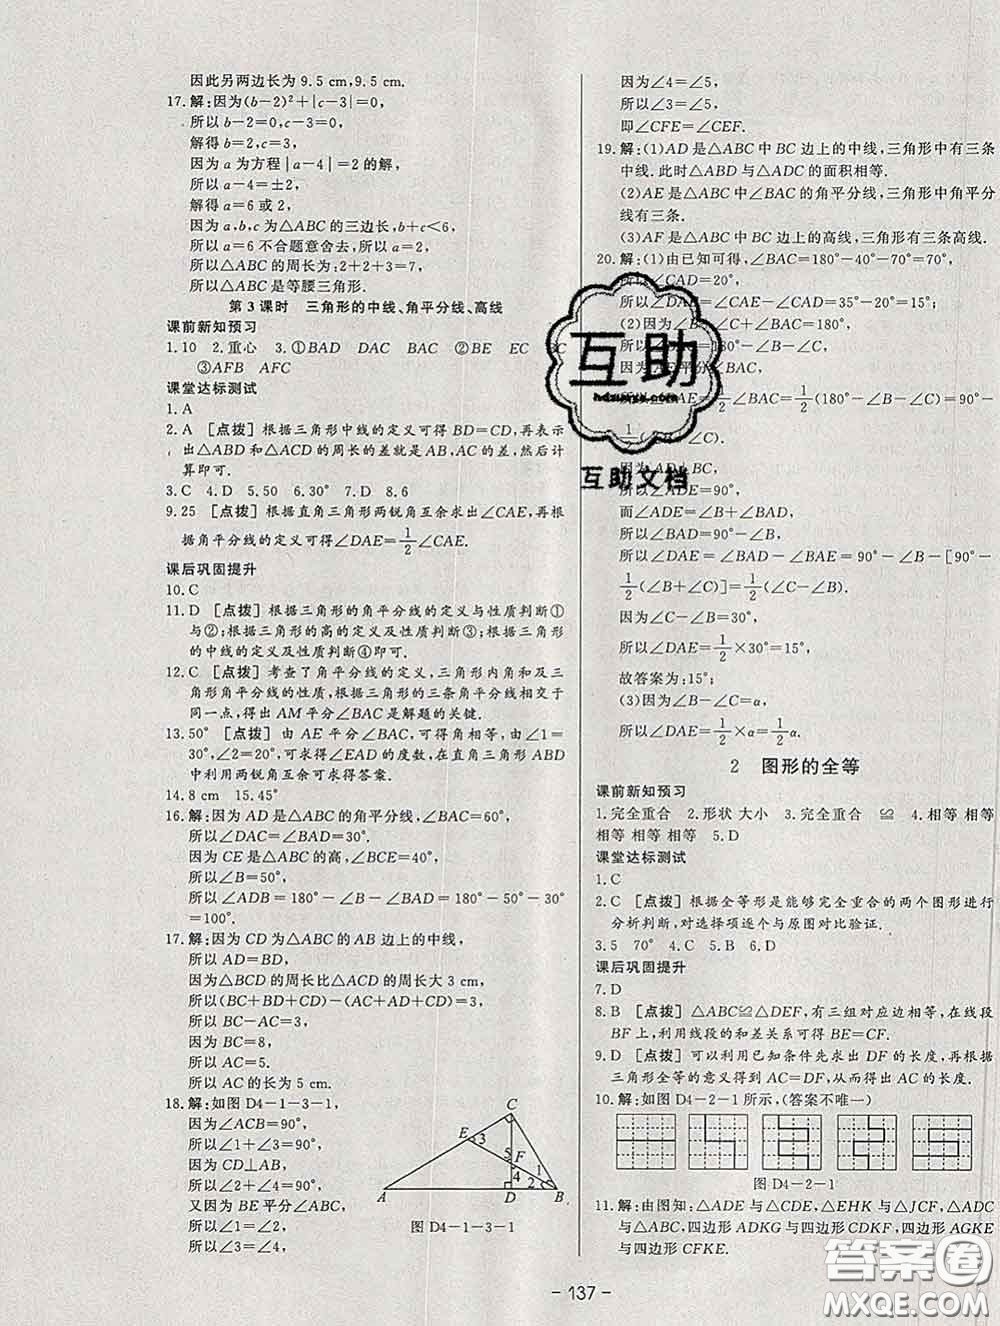 因此另两边长为9.5 cm,9.5 cm.
17.解:因为(b-2)²+|c-3|=0,
所以b-2=0,c-3=0,
解得b=2,c=3,
因为a为方程|a-4|=2的解,
所以a-4=±2,
解得a=6或2,
因为a,b,c为△ABC的三边长,b+c<6,
所以a=6不合题意舍去,所以a=2,
所以△ABC的周长为:2+2+3=7,
所以△ABC是等腰三角形.
第3课时 三角形的中线、角平分线、高线
课前新知预习
1.10 2.重心 3.①BAD DAC BAC ②BE EC BC
③AFB AFC
课堂达标测试
1.A
2.A [点拨]根据三角形中线的定义可得BD=CD,再表示
出△ABD和△ACD的周长的差就是AB,AC的差,然后计
算即可.
3.C 4.D 5.50 6.30° 7.D 8.6
9.25 [点拨]根据直角三角形两锐角互余求出∠CAE,再根
据角平分线的定义可得∠DAE=1/2∠CAE.
课后巩固提升
10.C
11.D [点拨]根据三角形的角平分线的定义与性质判断①
与②;根据三角形的高的定义及性质判断③;根据三角形
的中线的定义及性质判断④即可.
12.C [点拨]考查了角平分线的定义,三角形内角和及三
角形角平分线的性质,根据三角形的三条角平分线相交于
同一点,得出AM平分∠BAC是解题的关键.
13.50° [点拨]由AE平分∠BAC,可得角相等,由∠1=
30°,∠2=20°,可求得∠EAD的度数,在直角三角形ABD
中利用两锐角互余可求得答案.
14.8 cm 15.45°
16.解:因为AD是△ABC的角平分线,∠BAC=60°,
所以∠DAC=∠BAD=30°,
因为CE是△ABC的高,∠BCE=40°,
所以∠B=50°,
所以∠ADB=180°-∠B-∠BAD=180°-50°-30°
=100°.
17.解:因为CD为△ABC的AB边上的中线,
所以AD=BD,
因为△BCD的周长比△ACD的周长大3 cm,
所以(BC+BD+CD)-(AC+AD+CD)=3,
所以BC-AC=3,
因为BC=8,
所以AC=5.
所以AC的长为5 cm.
18.解:如图D4-1-3-1,
因为∠ACB=90°,
所以∠1+∠3=90°,
因为CD⊥AB,
所以∠2+∠4=90°,
又因为BE平分∠ABC,
所以∠1=∠2,
所以∠3=∠4,
C
E
3
5
F
4
1
2
A
D
B
图D4-1-3-1
因为∠4=∠5,
所以∠3=∠5,
即∠CFE=∠CEF.
19.解:(1)AD是△ABC中BC边上的中线,三角形中有三条
中线.此时△ABD与△ADC的面积相等.
(2)AE是△ABC中∠BAC的角平分线,三角形中角平分
线有三条.
(3)AF是△ABC中BC边上的高线,三角形有三条高线.
20.解:(1)由已知可得,∠BAC=180°-40°-70°=70°,
所以∠CAD=20°,
所以∠DAE=∠CAE-∠CAD=35°-20°=15°;
(2)因为∠B+∠C+∠BAC=180°,
所以∠BAC=180°-∠B-∠C,
因为AE平分∠BAC,
所以∠BAE=1/2∠BAC=1/2(180°-∠B-∠C)=90°-
1/2(∠B+∠C).
因为AD⊥BC,
所以∠ADE=90°,
而∠ADE=∠B+∠BAD,
所以∠BAD=90°-∠B,
所以∠DAE=∠BAD-∠BAE=90°-∠B-[90°-
1/2(∠B+∠C)]=1/2(∠C-∠B),
因为∠C-∠B=30°,
所以∠DAE=1/2×30°=15°,
故答案为:15°;
(3)因为∠B-∠C=α,
所以∠DAE=1/2×α=1/2α.
2 图形的全等
课前新知预习
1.完全重合 2.形状 大小 3.完全重合 ≌ 4.相等 相等
相等 相等 相等 5.D
课堂达标测试
1.C
2.C [点拨]根据全等形是能够完全重合的两个图形进行
分析判断,对选择项逐个与原图对比验证.
3.5 70° 4.C 5.B 6.D
课后巩固提升
7.D
8.B [点拨]△ABC≌△DEF,有三组对应边相等,在线段
BF上,利用线段的和差关系可得BE=CF.
9.D [点拨]可以利用已知条件先求出DF的长度,再根据
三角形全等的意义得到DF=AC,从而得出AC的长度.
10.解:如图D4-2-1所示,(答案不唯一)
图D4-2-1
11.解:由图知:△ADE与△CDE,△EHK与△JCF,△ADC
与△ABC,四边形ADKG与四边形CDKF,四边形AGKE
与四边形CFKE.
- 137 -
互助
hdzuoye.com
互助文档
答案圈
MXQE.COM